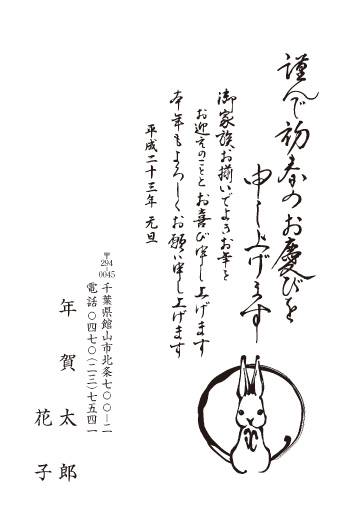 謹んで初春のお慶びを
申し上げます
御家族お揃いでよきお年を
お迎えのこととお喜び申し上げます
本年もよろしくお願い申し上げます
平成二十三年 元旦
〒294-0045
千葉県館山市北条七〇〇―二
電話〇四七〇(二三)七五四一
年賀太郎
花子